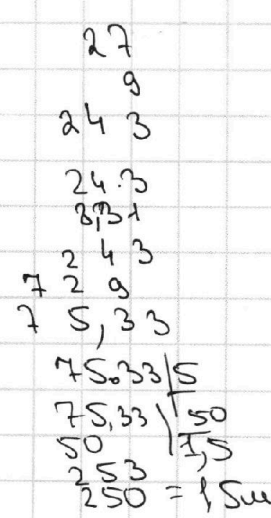 27
9
243
24.3
3,31
243
729
75,33
75.33 5
75,33 50
50 1,5
253
250 = 1,5m